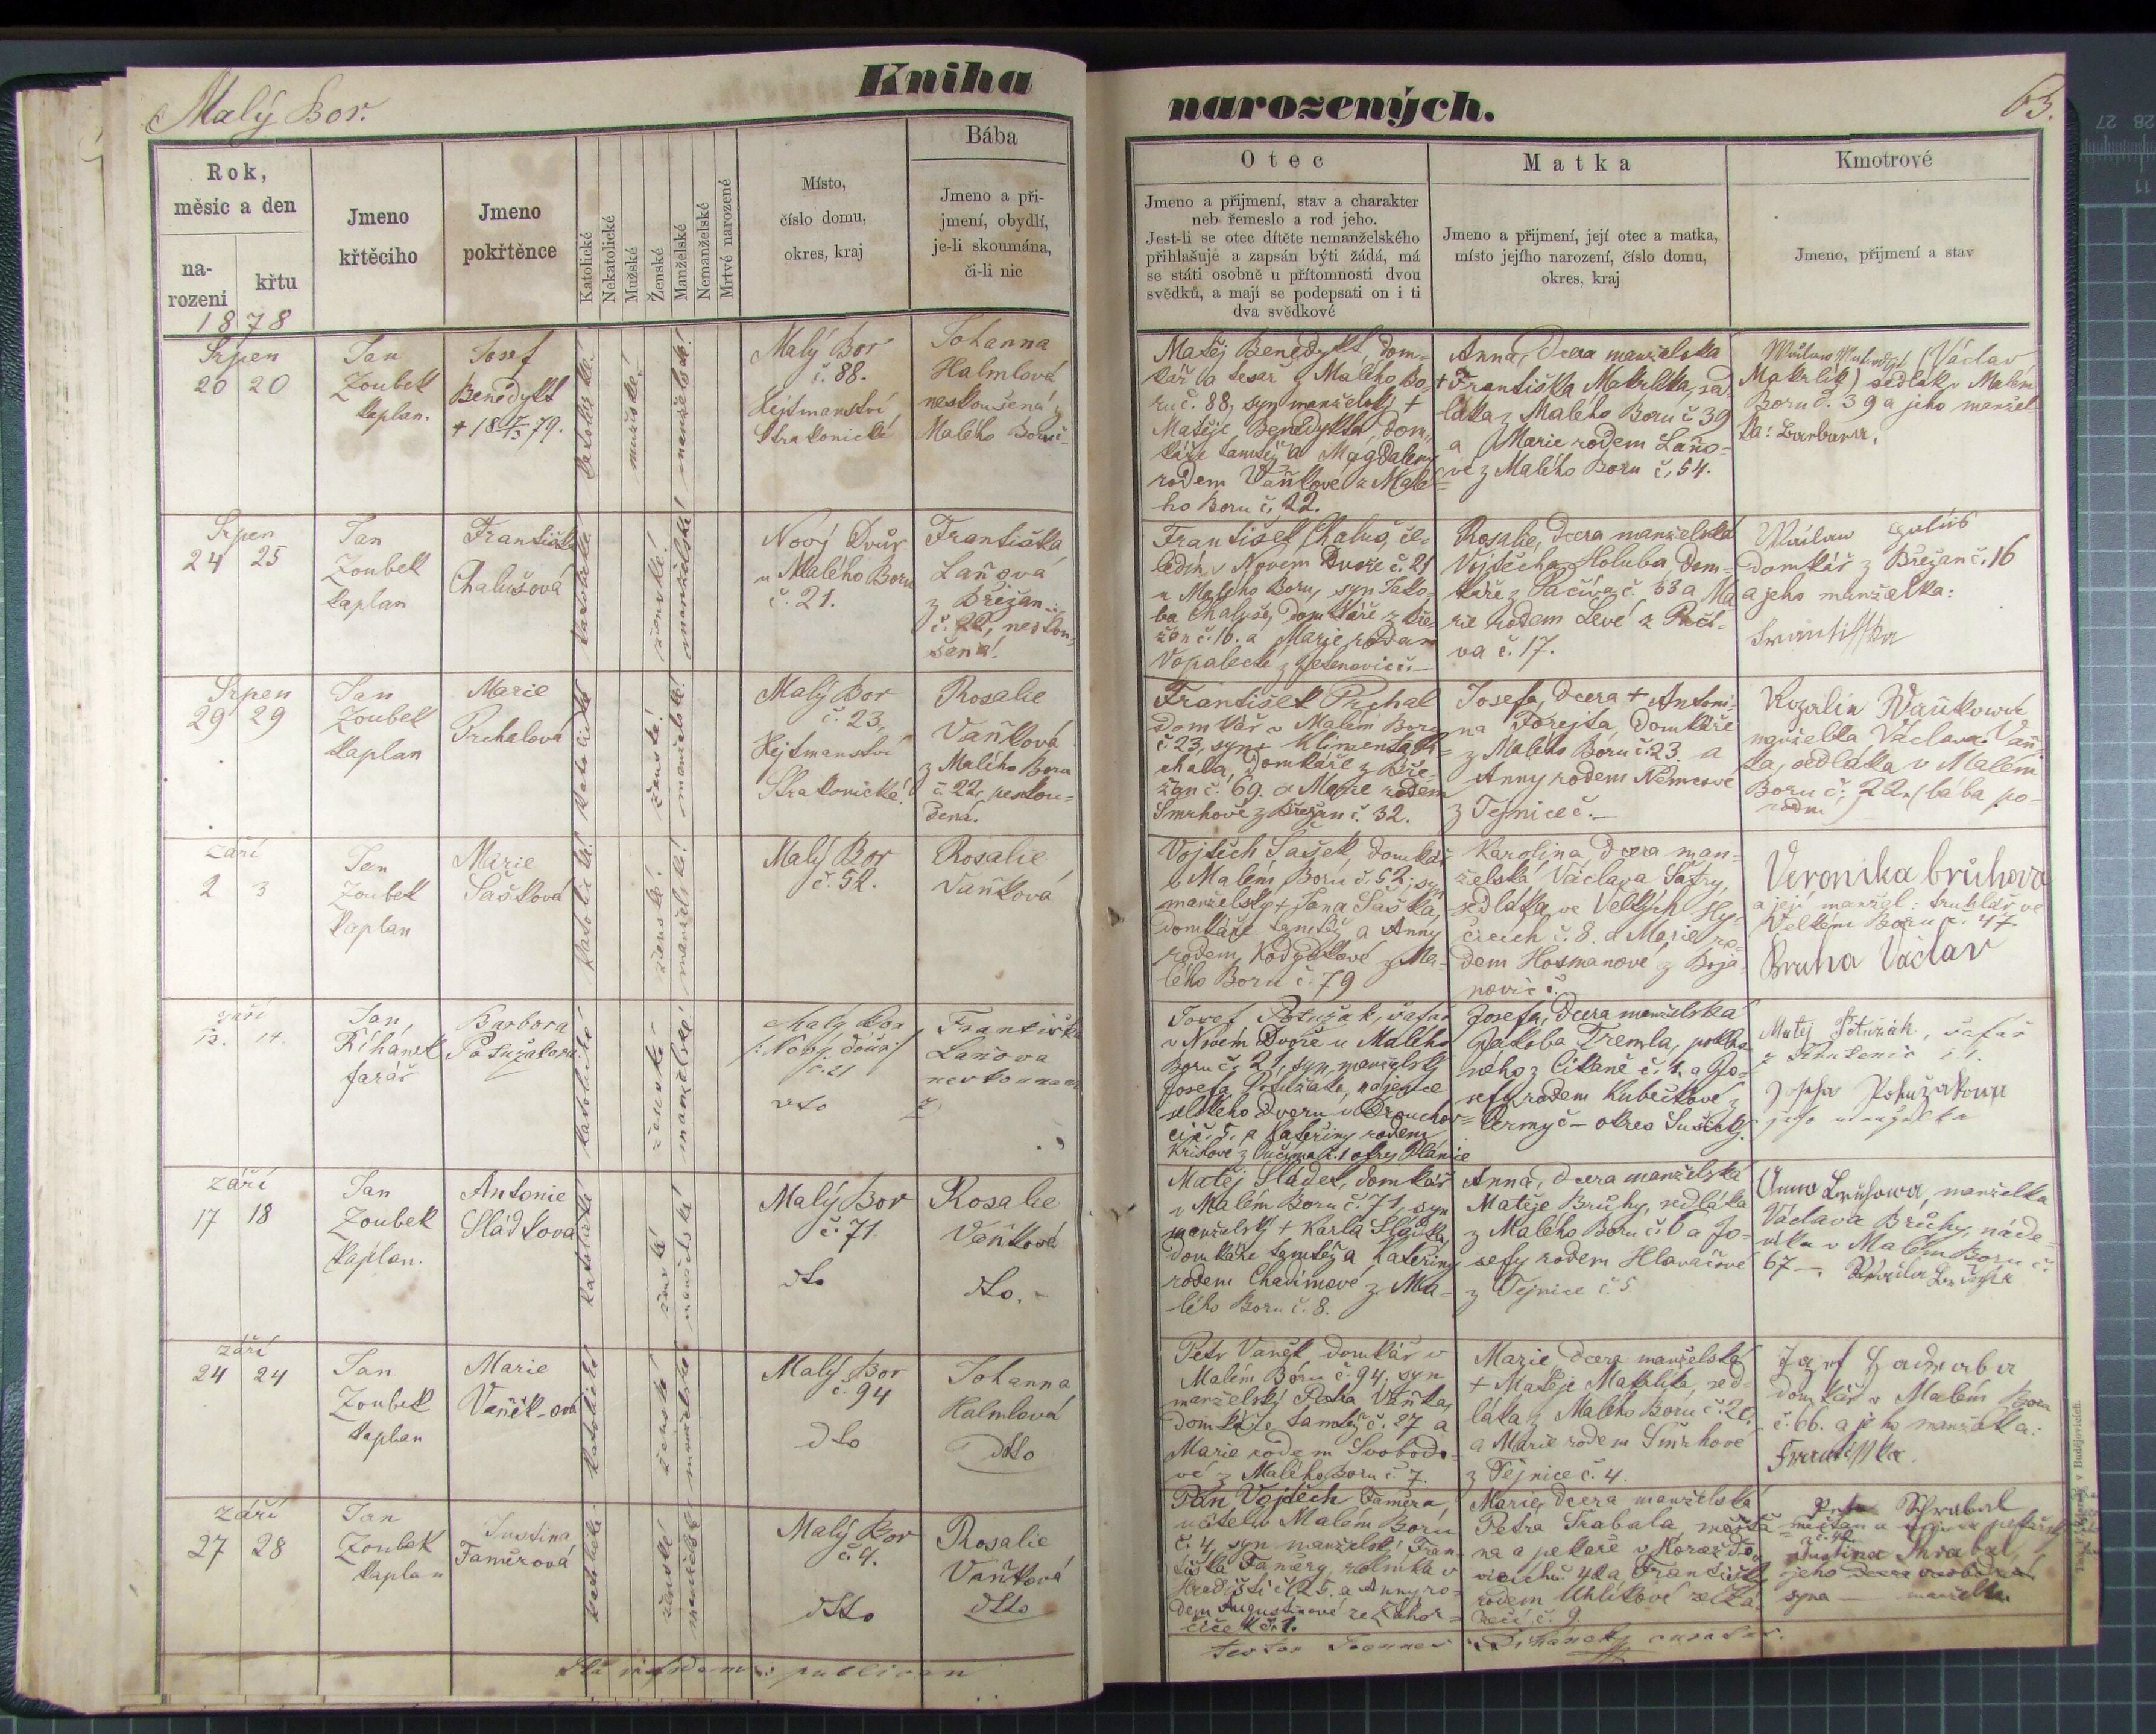 Malý Bor.
Kniha
narozených.
63.
Rok,
měsíc a den
na-
rození
křtu
1878
Jmeno
křtěcího
Jmeno
pokřtěnce
Katolické
Nekatolické
Mužské
Ženské
Manželské
Nemanželské
Mrtvě narozené
Místo,
číslo domu,
okres, kraj
Bába
Jmeno a při-
jmení, obydlí,
je-li skoumána,
či-li nic
Otec
Jmeno a přijmení, stav a charakter
neb řemeslo a rod jeho.
Jest-li se otec dítěte nemanželského
přihlašuje a zapsán býti žádá, má
se státi osobně u přítomnosti dvou
svědků, a mají se podepsati on i ti
dva svědkové
Matka
Jmeno a přijmení, její otec a matka,
místo jejího narození, číslo domu,
okres, kraj
Kmotrové
Jmeno, přijmení a stav
Srpen
20 20
Jan
Zoubek
kaplan.
Josef
Benedykt
katolické!
mužské!
manželské!
Malý Bor
č. 88.
Hejtmanství
Strakonické
Johanna
Halmlová
neskoušená z
Malého Boru č.
Matěj Benedykt, dom-
kář a tesař z Malého Bo-
ru č. 88, syn manželský +
Matěje Benedykta, dom-
káře tamtéž a Magdaleny
rodem Vaňkové z Malé-
ho Boru č. 22.
Anna, dcera manželská
+ Františka Makrlíka, sed-
láka z Malého Boru č 39
a Marie rodem Laňo-
vé z Malého Boru č. 54.
(Václav
Makrlík) sedlák v Malém
Boru č. 39 a jeho manžel-
ka: Barbara.
Srpen
24 25
Jan
Zoubek
kaplan
Františka
Chalušová
katolické
ženské!
manželské!
Nový Dvůr
u Malého Boru
č. 21.
Františka
Laňová
z Břežan
neskou-
šená!
František Chaluš, če-
ledín v Novém Dvoře č. 21
u Malého Boru, syn Jako-
ba Chaluše, domkáře z Bře-
žan č. 16. a Marie rodem
Vopalecké z
Rosalie, dcera manželská
Vojtěcha Holuba dom-
káře z Pačiva č. 53 a Ma
rie rodem Levé z Pači-
va č. 17.
Wáclaw
domkář z Břežan č. 16
a jeho manželka:
Frantisska
Srpen
29 29
Jan
Zoubek
kaplan
Marie
Prchalová
katolické
ženské!
manželské!
Malý Bor
č. 23,
Hejtmanství
Strakonické!
Rosalie
Vaňková
z Malého Boru
č. 22, neskou-
šená.
František Prchal
domkář v Malém Boru
č. 23, syn + Klimenta Pr-
chala, domkáře z Bře-
žan č. 69. a Marie rodem
Smrhové z Břežan č. 32.
Josefa, dcera + Antoní-
na Forejta, domkáře
z Malého Boru č. 23. a
Anny rodem Němcové
z Tejnice č. —
Rozalie Waňkowá
manželka Václava Vaň-
ka, sedláka v Malém
Boru č. 22. (bába po-
rodní)
září
2 3
Jan
Zoubek
kaplan
Marie
Šašková
katolické!
ženské!
manželské!
Malý Bor
č. 52.
Rosalie
Vaňková
Vojtěch Šašek, domkář
v Malém Boru č. 52; syn
manželský + Jana Šaška,
domkáře tamtéž a Anny
rodem Kodydkové z Ma-
lého Boru č. 79
Karolina, dcera man-
želská Václava Šatry,
sedláka ve Velkých Hy-
čicích č. 8. a Marie ro-
dem Hosmanové z Boja-
novic č.
Veronika brůhova
a její manžel: truhlář ve
Velkém Boru č. 47.
Bruha Václav
září
13. 14.
Jan
Říhánek
farář
Barbora
Potužáková
katolické
ženské
manželské
Malý Bor
/: Nový dvůr :/
č. 21
dto
Františka
Laňova
Josef Potužák, šafář
v Novém Dvoře u Malého
Boru č. 21, syn manželský
Josefa Potužáka, nájemce
selského dvoru v
č. 5. a Kateřiny rodem
Josefa, dcera manželská
Jakoba Tremla,
z č. 1. a Jo-
sefy rodem Kubečkové z
Čermy č — okres Sušický.
Matej Potužák, šafář
Josefa Potužakowa
jeho manželka
září
17 18
Jan
Zoubek
kaplan.
Antonie
Sládková
katolické
ženské
manželské
Malý Bor
č. 71.
dto
Rosalie
Vaňková
dto. -
Matěj Sládek, domkář
v Malém Boru č. 71, syn
manželský + Karla Sládka,
domkáře tamtéž a Kateřiny
rodem Chadimové z Ma-
lého Boru č. 8.
Anna, dcera manželská
Matěje Brůhy, sedláka
z Malého Boru č. 6 a Jo-
sefy rodem Hlaváčové
z Tejnice č. 5.
Anna Brůhowá, manželka
Václava Brůhy, náde-
níka v Malém Boru č.
67 —.
září
24 24
Jan
Zoubek
kaplan
Marie
Vaněk-ová
katolické
ženské
manželské
Malý Bor
č. 94
dto
Johanna
Halmlová
dtto
Petr Vaněk domkář v
Malém Boru č. 94, syn
manželský Petra Vaňka,
domkáře tamtéž č. 27 a
Marie rodem Svobodo-
vé z Malého Boru č. 7.
Marie dcera manželská
+ Matěje Makrlíka, sed-
láka z Malého Boru č. 20,
a Marie rodem Smrhové
z Tejnice č. 4.
Jozef
domkář v Malém Boru
č. 66. a jeho manželka:
Frantisska.
září
27 28
Jan
Zoubek
kaplan
Justina
Faměrová
katolické
ženské
manželské
Malý Bor
č. 4.
dtto
Rosalie
Vaňková
dtto
Pan Vojtěch Faměra
učitel v Malém Boru
č. 4, syn manželský Fran-
tiška Faměry, rolníka v
Hradišti č 25. a Anny ro-
dem Augustinové ze Záhor-
čiček č. 1.
Marie, dcera manželská
Petra Skrabala, měšťa-
na a pekaře v Horaždo-
vicích č. 42 a Františky
rodem Uhlíkové ze
č. 9.
Skrabal
měšťan a
Justina Skrabal,
jeho
syna — manželka
publicum
testor Joannes Říhánek, curatus.